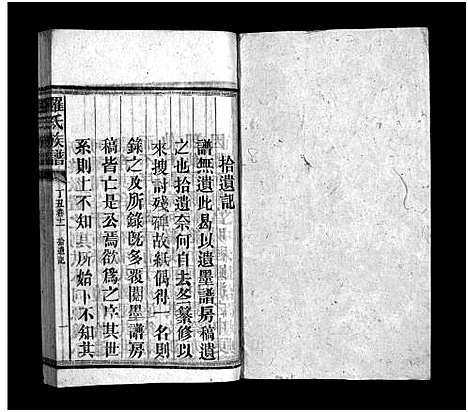 拾遺記
譜無遺此曷以遺墨譜房稿遺
之也拾遺奈何自去冬纂修以
來搜討殘碑故紙偶得一名則
錄之及所錄旣多覆閱墨譜房
稿皆亡是公焉欲為之序其世
系則上不知其所始下不知其
羅氏族譜
丁丑卷十一
拾遺記
一